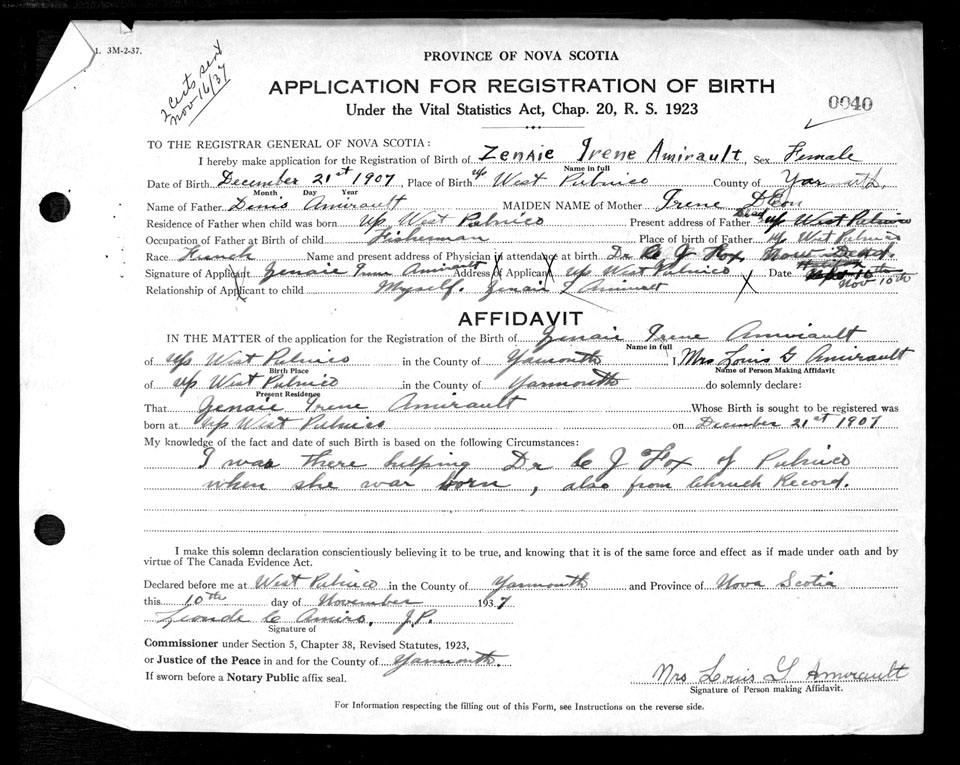 1. 3M-2-37.
2 Certs sent
Nov 16/37
PROVINCE OF NOVA SCOTIA
APPLICATION FOR REGISTRATION OF BIRTH
Under the Vital Statistics Act, Chap. 20, R. S. 1923
0040
TO THE REGISTRAR GENERAL OF NOVA SCOTIA:
I hereby make application for the Registration of Birth of Zenaie Irene Amirault, Sex Female
Name in full
Date of Birth December 21st 1907, Place of Birth Up West Pubnico County of Yarmouth
Month Day Year
Name of Father Denis Amirault MAIDEN NAME of Mother Irene D'Eon
Residence of Father when child was born Up West Pubnico Present address of Father Dead Up West Pubnico
Occupation of Father at Birth of child Fisherman Place of birth of Father Up West Pubnico
Race French Name and present address of Physician in attendance at birth Dr C J Fox, Now Dead.
Signature of Applicant Genaie Irene Amirault Address of Applicant Up West Pubnico Date Nov 10th
Relationship of Applicant to child Myself. Genaie I Amirault
AFFIDAVIT
IN THE MATTER of the application for the Registration of the Birth of Genaie Irene Amirault
Name in full
of Up West Pubnico in the County of Yarmouth I Mrs Louis G Amirault
Birth Place Name of Person Making Affidavit
of Up West Pubnico in the County of Yarmouth do solemnly declare:
Present Residence
That Genaie Irene Amirault Whose Birth is sought to be registered was
born at Up West Pubnico on December 21st 1907
My knowledge of the fact and date of such Birth is based on the following Circumstances:
I was there helping Dr C J Fox of Pubnico
when she was born, also from Chruch Record.
I make this solemn declaration conscientiously believing it to be true, and knowing that it is of the same force and effect as if made under oath and by
virtue of The Canada Evidence Act.
Declared before me at West Pubnico in the County of Yarmouth and Province of Nova Scotia
this 10th day of November 1937
Leonde C Amiro, J.P.
Signature of
Commissioner under Section 5, Chapter 38, Revised Statutes, 1923,
or Justice of the Peace in and for the County of Yarmouth.
If sworn before a Notary Public affix seal.
Mrs Louis G Amirault
Signature of Person making Affidavit.
For Information respecting the filling out of this Form, see Instructions on the reverse side.